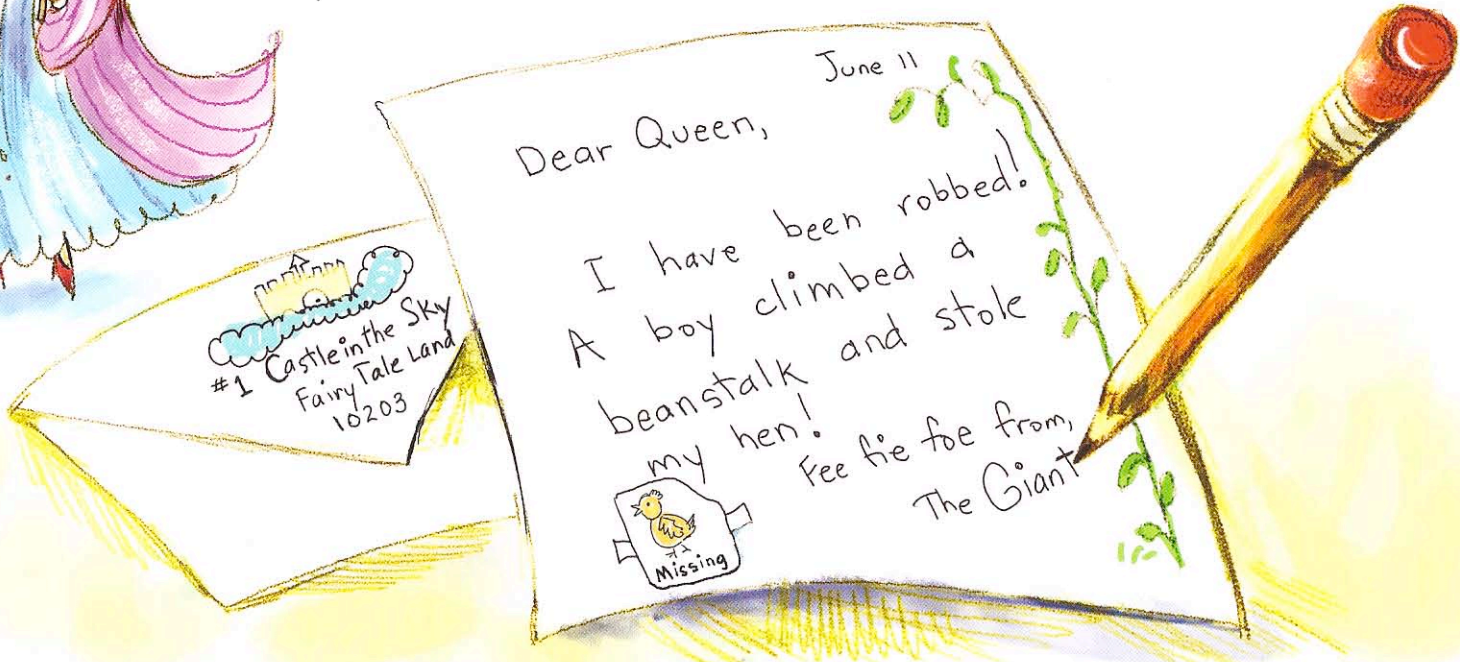 #1 Castle in the Sky
Fairy Tale Land
10203
June 11
Dear Queen,
I have been robbed!
A boy climbed a
beanstalk and stole
my hen!
Fee fie foe from,
The Giant
Missing